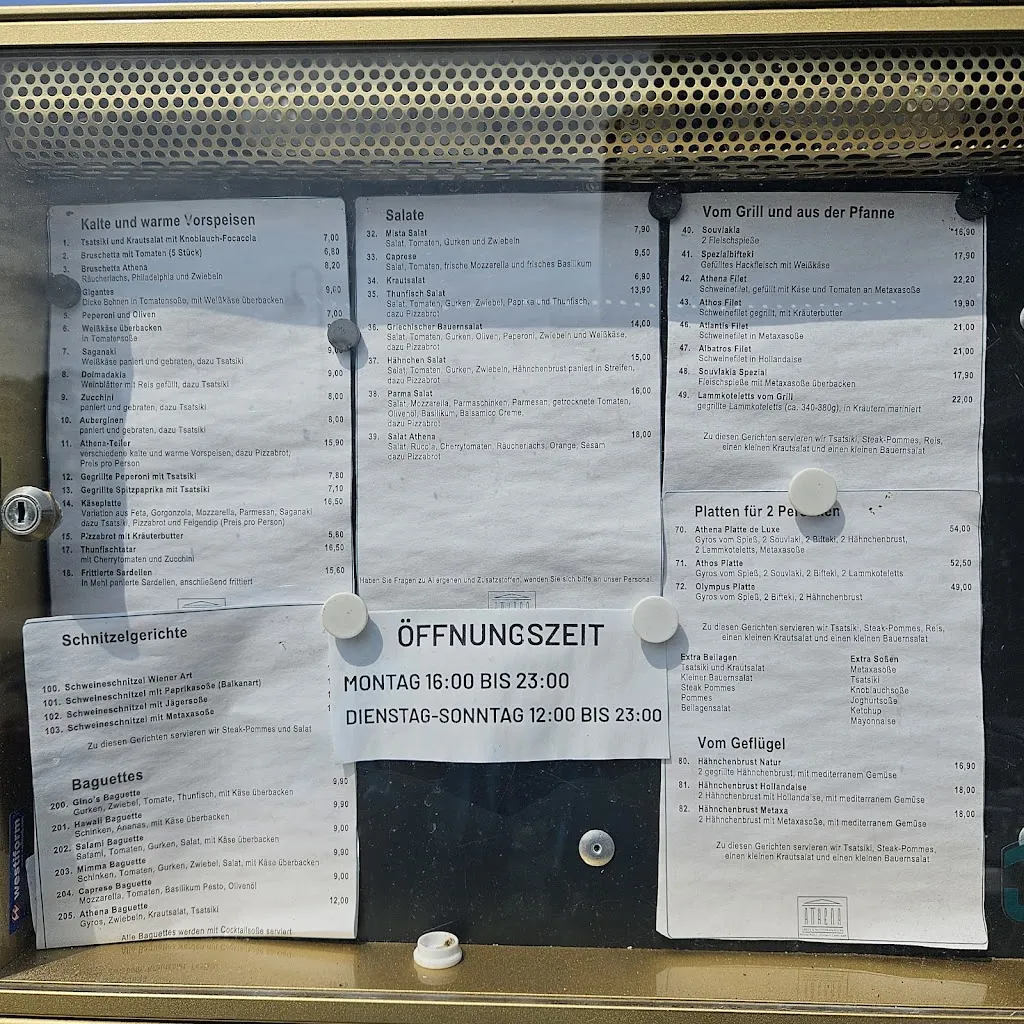 Kalte und warme Vorspeisen
1. Tsatsiki und Krautsalat mit Knoblauch-Focaccia 7,00
2. Bruschetta mit Tomaten (5 Stück) 6,80
3. Bruschetta Athena 8,20
Räucherlachs, Philadelphia und Zwiebeln
Gigantes 9,00
Dicke Bohnen in Tomatensoße, mit Weißkäse überbacken
5. Peperoni und Oliven 7,00
6. Weißkäse überbacken
in Tomatensoße
7. Saganaki 9,00
Weißkäse paniert und gebraten, dazu Tsatsiki
8. Dolmadakia 9,00
Weinblätter mit Reis gefüllt, dazu Tsatsiki
9. Zucchini 8,00
paniert und gebraten, dazu Tsatsiki
10. Auberginen 8,00
paniert und gebraten, dazu Tsatsiki
11. Athena-Teller 15,90
verschiedene kalte und warme Vorspeisen, dazu Pizzabrot,
Preis pro Person
12. Gegrillte Peperoni mit Tsatsiki 7,80
13. Gegrillte Spitzpaprika mit Tsatsiki 7,10
14. Käseplatte 16,50
Variation aus Feta, Gorgonzola, Mozzarella, Parmesan, Saganaki
dazu Tsatsiki, Pizzabrot und Feigendip (Preis pro Person)
15. Pizzabrot mit Kräuterbutter 5,60
17. Thunfischtatar 16,50
mit Cherrytomaten und Zucchini
18. Frittierte Sardellen 15,60
in Mehl panierte Sardellen, anschließend frittiert
Salate
32. Mista Salat 7,90
Salat, Tomaten, Gurken und Zwiebeln
33. Caprese 9,50
Salat, Tomaten, frische Mozzarella und frisches Basilikum
34. Krautsalat 6,90
35. Thunfisch Salat 13,90
Salat, Tomaten, Gurken, Zwiebel, Paprika und Thunfisch,
dazu Pizzabrot
36. Griechischer Bauernsalat 14,00
Salat, Tomaten, Gurken, Oliven, Peperoni, Zwiebeln und Weißkäse,
dazu Pizzabrot
37. Hähnchen Salat 15,00
Salat, Tomaten, Gurken, Zwiebeln, Hähnchenbrust paniert in Streifen,
dazu Pizzabrot
38. Parma Salat 16,00
Salat, Mozzarella, Parmaschinken, Parmesan, getrocknete Tomaten,
Olivenöl, Basilikum, Balsamico Creme,
dazu Pizzabrot
39. Salat Athena 18,00
Salat, Ruccla, Cherrytomaten, Räucherlachs, Orange, Sesam
dazu Pizzabrot
Haben Sie Fragen zu Allergenen und Zusatzstoffen, wenden Sie sich bitte an unser Personal.
Vom Grill und aus der Pfanne
40. Souvlakia 16,90
2 Fleischspieße
41. Spezialbifteki 17,90
Gefülltes Hackfleisch mit Weißkäse
42. Athena Filet 22,20
Schweinefilet, gefüllt mit Käse und Tomaten an Metaxasoße
43. Athos Filet 19,90
Schweinefilet gegrillt, mit Kräuterbutter
46. Atlantis Filet 21,00
Schweinefilet in Metaxasoße
47. Albatros Filet 21,00
Schweinefilet in Hollandaise
48. Souvlakia Spezial 17,90
Fleischspieße mit Metaxasoße überbacken
49. Lammkoteletts vom Grill 22,00
gegrillte Lammkoteletts (ca. 340-380g), in Kräutern mariniert
Zu diesen Gerichten servieren wir Tsatsiki, Steak-Pommes, Reis,
einen kleinen Krautsalat und einen kleinen Bauernsalat
Platten für 2 Personen
70. Athena Platte de Luxe 54,00
Gyros vom Spieß, 2 Souvlaki, 2 Bifteki, 2 Hähnchenbrust,
2 Lammkoteletts, Metaxasoße
71. Athos Platte 52,50
Gyros vom Spieß, 2 Souvlaki, 2 Bifteki, 2 Lammkoteletts
72. Olympus Platte 49,00
Gyros vom Spieß, 2 Bifteki, 2 Hähnchenbrust
Zu diesen Gerichten servieren wir Tsatsiki, Steak-Pommes, Reis,
einen kleinen Krautsalat und einen kleinen Bauernsalat
Extra Beilagen
Tsatsiki und Krautsalat
Kleiner Bauernsalat
Steak Pommes
Pommes
Beilagensalat
Extra Soßen
Metaxasoße
Tsatsiki
Knoblauchsoße
Joghurtsoße
Ketchup
Mayonnaise
Vom Geflügel
80. Hähnchenbrust Natur 16,90
2 gegrillte Hähnchenbrust, mit mediterranem Gemüse
81. Hähnchenbrust Hollandaise 18,00
2 Hähnchenbrust mit Hollandaise, mit mediterranem Gemüse
82. Hähnchenbrust Metaxa 18,00
2 Hähnchenbrust mit Metaxasoße, mit mediterranem Gemüse
Zu diesen Gerichten servieren wir Tsatsiki, Steak-Pommes,
einen kleinen Krautsalat und einen kleinen Bauernsalat
ATHENA
Schnitzelgerichte
100. Schweineschnitzel Wiener Art
101. Schweineschnitzel mit Paprikasoße (Balkanart)
102. Schweineschnitzel mit Jägersoße
103. Schweineschnitzel mit Metaxasoße
Zu diesen Gerichten servieren wir Steak-Pommes und Salat
Baguettes
200. Gino's Baguette 9,90
Gurken, Zwiebel, Tomate, Thunfisch, mit Käse überbacken
201. Hawaii Baguette 9,90
Schinken, Ananas, mit Käse überbacken
202. Salami Baguette 9,00
Salami, Tomaten, Gurken, Salat, mit Käse überbacken
203. Mimma Baguette 9,90
Schinken, Tomaten, Gurken, Zwiebel, Salat, mit Käse überbacken
204. Caprese Baguette 9,00
Mozzarella, Tomaten, Basilikum Pesto, Olivenöl
205. Athena Baguette 12,00
Gyros, Zwiebeln, Krautsalat, Tsatsiki
Alle Baguettes werden mit Cocktailsoße serviert
ÖFFNUNGSZEIT
MONTAG 16:00 BIS 23:00
DIENSTAG-SONNTAG 12:00 BIS 23:00
westiform